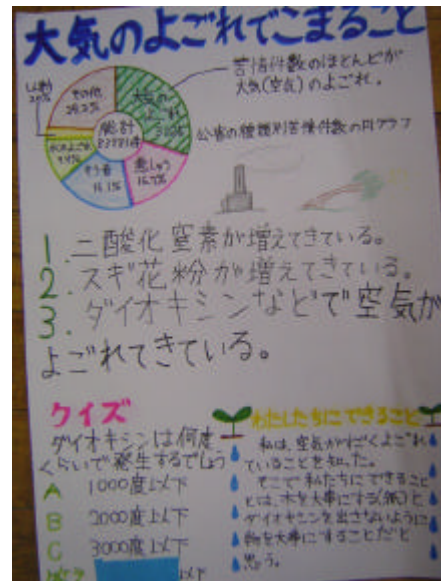 大気のよごれでこまること
苦情件数のほとんどが
大気(空気)のよごれ。
公害の種類別苦情件数の円グラフ
その他
大気の
よごれ
総計
83881件
悪しゅう
16.7%
そう音
16.1%
水のよごれ
1.二酸化窒素が増えてきている。
2.スギ花粉が増えてきている。
3.ダイオキシンなどで空気が
よごれてきている。
クイズ
ダイオキシンは何度
くらいで発生するでしょう
A 1000度以下
B 2000度以下
C 3000度以下
答え 以下
わたしたちにできること
私は、空気がすごくよごれ
ていることを知った。
そこで私たちにできるこ
とは、木を大事にする(紙)と
ダイオキシンを出さないように
物を大事にすることだと
思う。